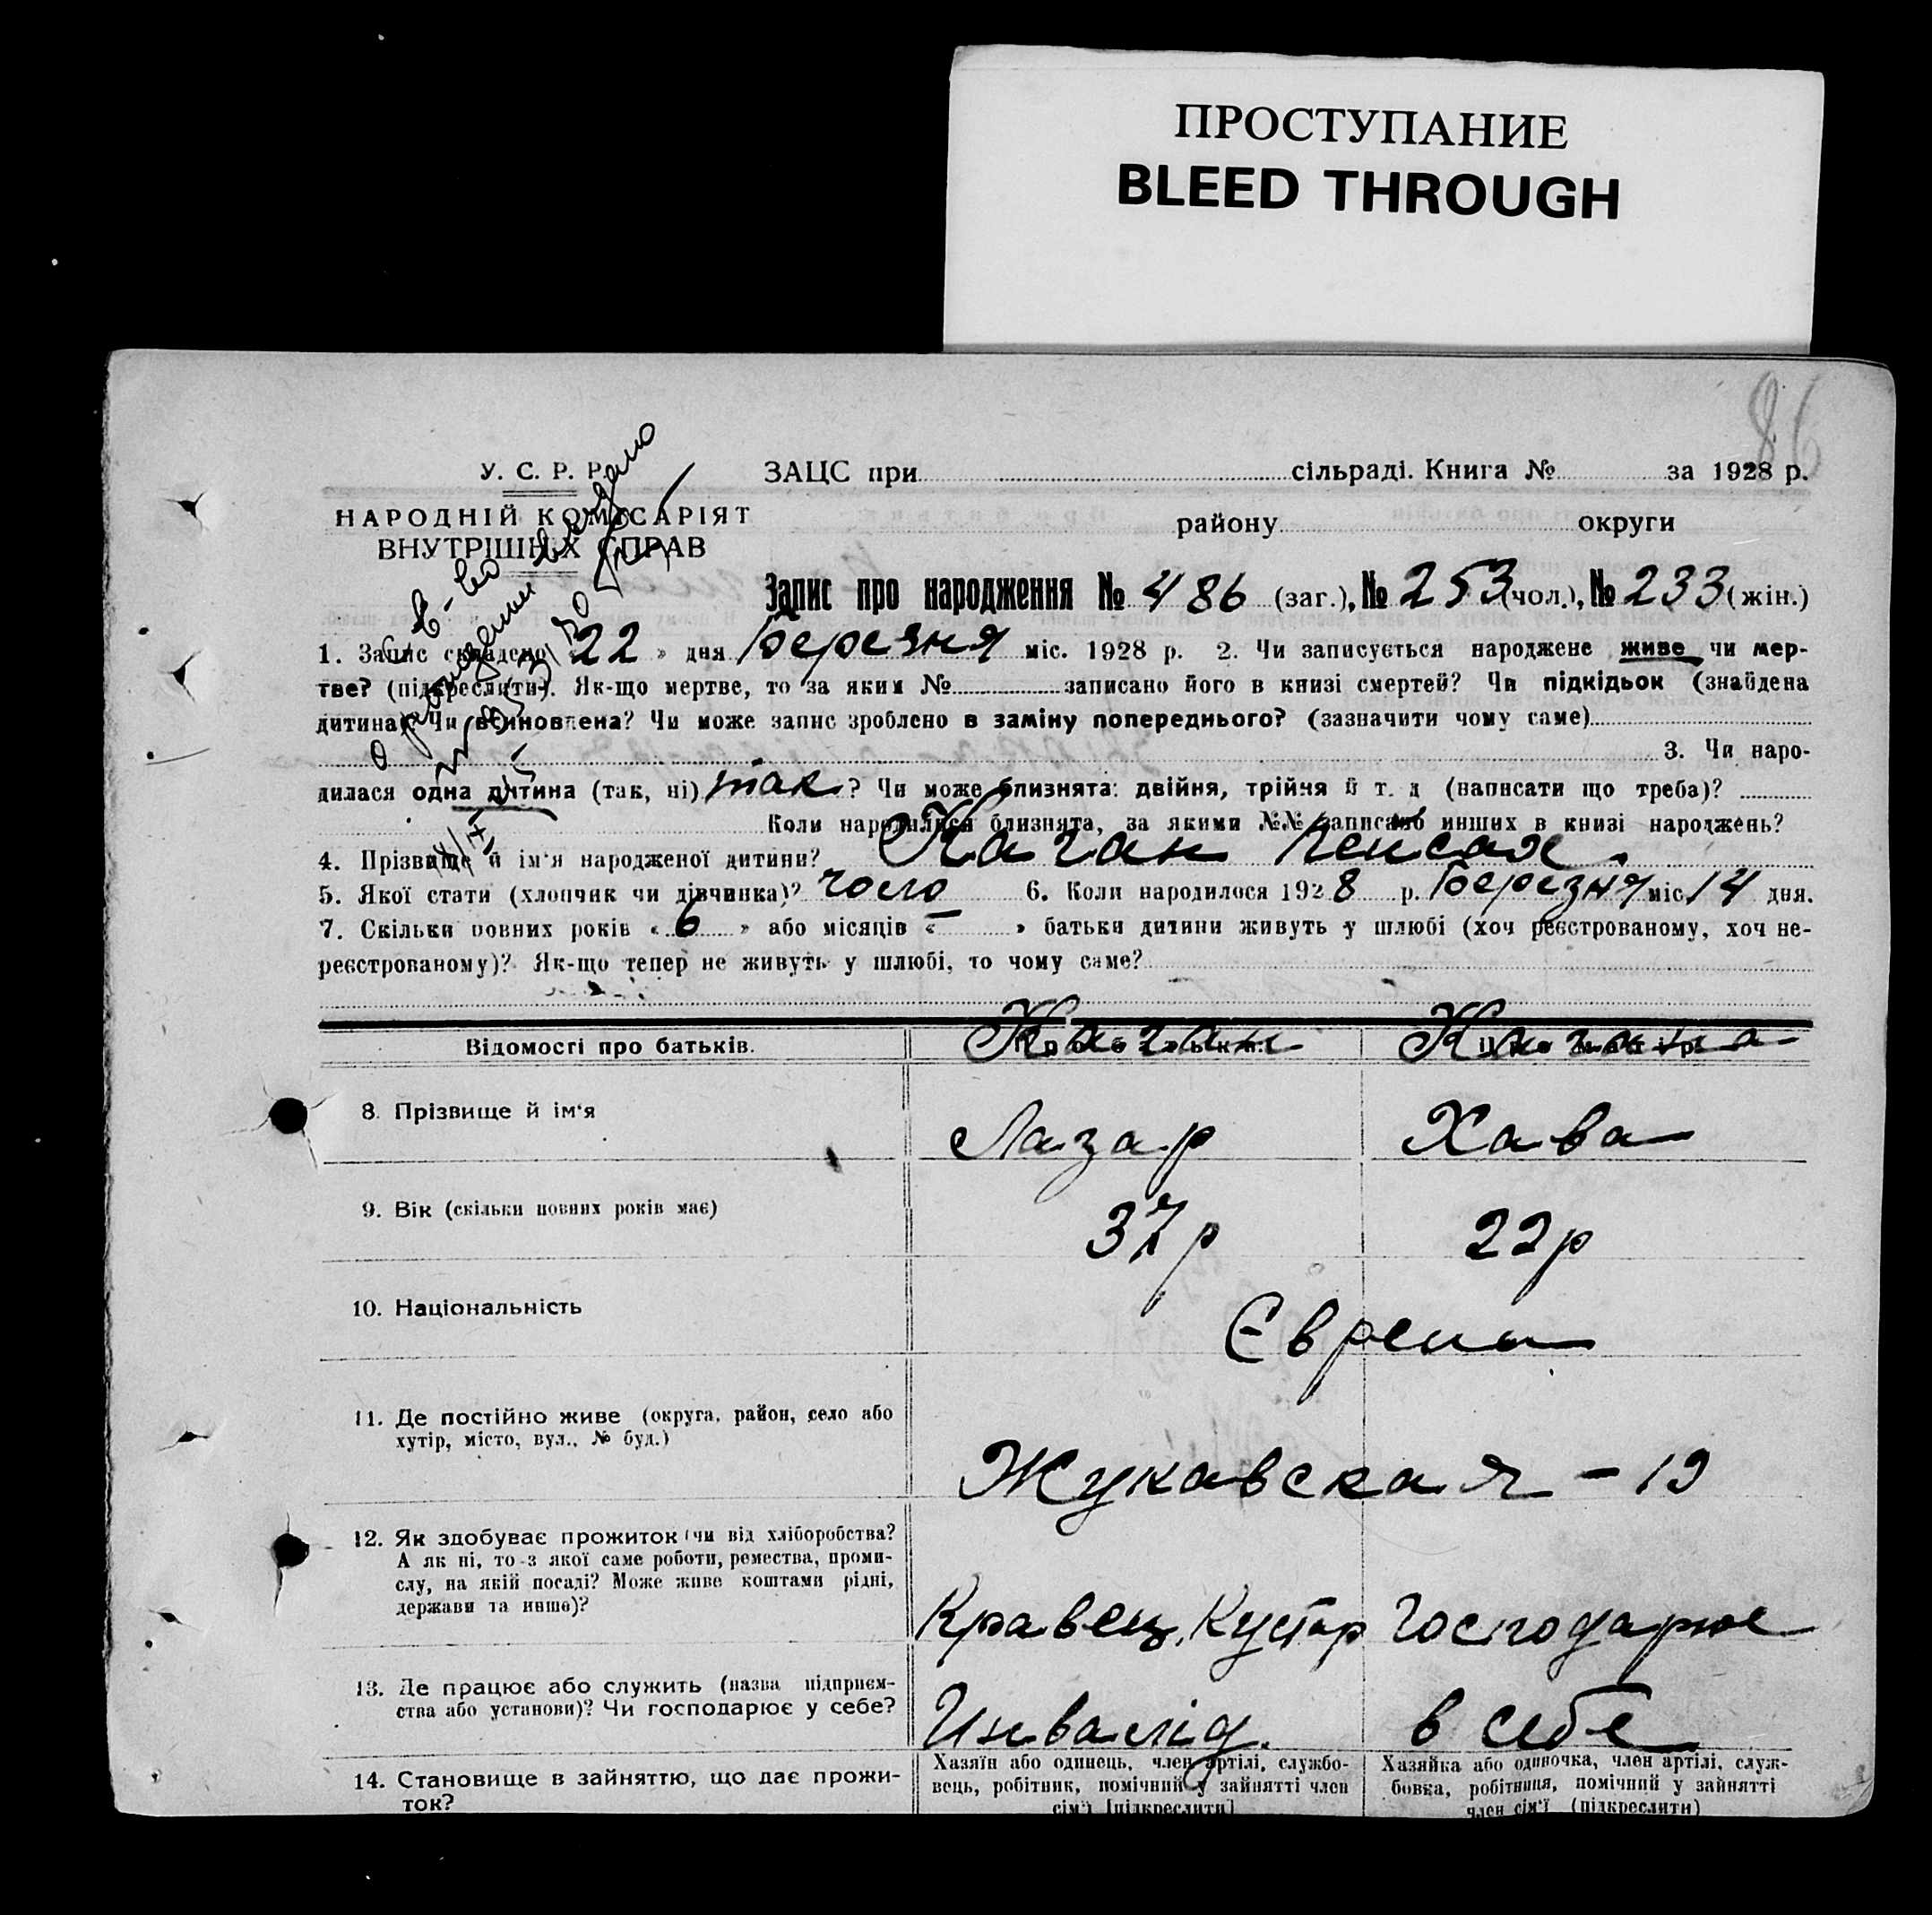 ПРОСТУПАНИЕ
BLEED THROUGH
86
У. С. Р. Р.
НАРОДНІЙ КОМІСАРІЯТ
ВНУТРІШНІХ СПРАВ
ЗАЦС при сільраді. Книга № за 1928 р.
району округи
Запис про народження № 486 (заг.), № 253 (чол.), № 233 (жін.)
1. Запис складено «22» дня Березня міс. 1928 р. 2. Чи записується народжене живе чи мер-
тве? (підкреслити). Як-що мертве, то за яким № записано його в книзі смертей? Чи підкідьок (знайдена
дитина)? Чи всиновлена? Чи може запис зроблено в заміну попереднього? (зазначити чому саме)
3. Чи наро-
дилася одна дитина (так, ні) так? Чи може близнята: двійня, трійня й т. д (написати що треба)?
Коли народилися близнята, за якими №№ записано инших в книзі народжень?
4. Прізвище й ім'я народженої дитини? Каган
5. Якої стати (хлопчик чи дівчинка)? чоло 6. Коли народилося 1928 р. Березня міс 14 дня.
7. Скільки повних років «6» або місяців «—» батьки дитини живуть у шлюбі (хоч реєстрованому, хоч не-
реєстрованому)? Як-що тепер не живуть у шлюбі, то чому саме?
Відомості про батьків. Каган Кагана
8. Прізвище й ім'я Лазар Хава
9. Вік (скільки повних років має) 37р 22р
10. Національність Євреи
11. Де постійно живе (округа, район, село або
хутір, місто, вул., № буд.)
Жуковская - 19
12. Як здобуває прожиток (чи від хліборобства?
А як ні, то з якої саме роботи, ремества, проми-
слу, на якій посаді? Може живе коштами рідні,
держави та инше)?
Кравец, Кустар Господарює
13. Де працює або служить (назва підприєм-
ства або установи)? Чи господарює у себе?
Инвалід. в себе
14. Становище в зайняттю, що дає прожи-
ток?
Хазяїн або одинець, член артілі, службо-
вець, робітник, помічний у зайнятті член
сім'ї [підкреслити]
Хазяйка або одиночка, член артілі, служ-
бовка, робітниця, помічний у зайнятті
член сім'ї (підкреслити)